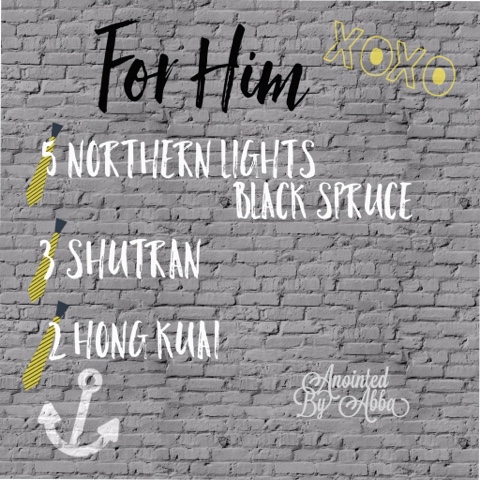 For Him
XOXO
5 NORTHERN LIGHTS
BLACK SPRUCE
3 SHUTRAN
2 HONG KUAI
Anointed
By Abba